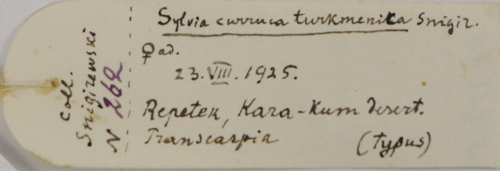 Sylvia curruca turkmenica Snigir.
♀ ad.
23.VIII.1925.
Repetek, Kara-Kum desert.
Transcaspia (Typus)
Coll.
Snigirewski
N 262